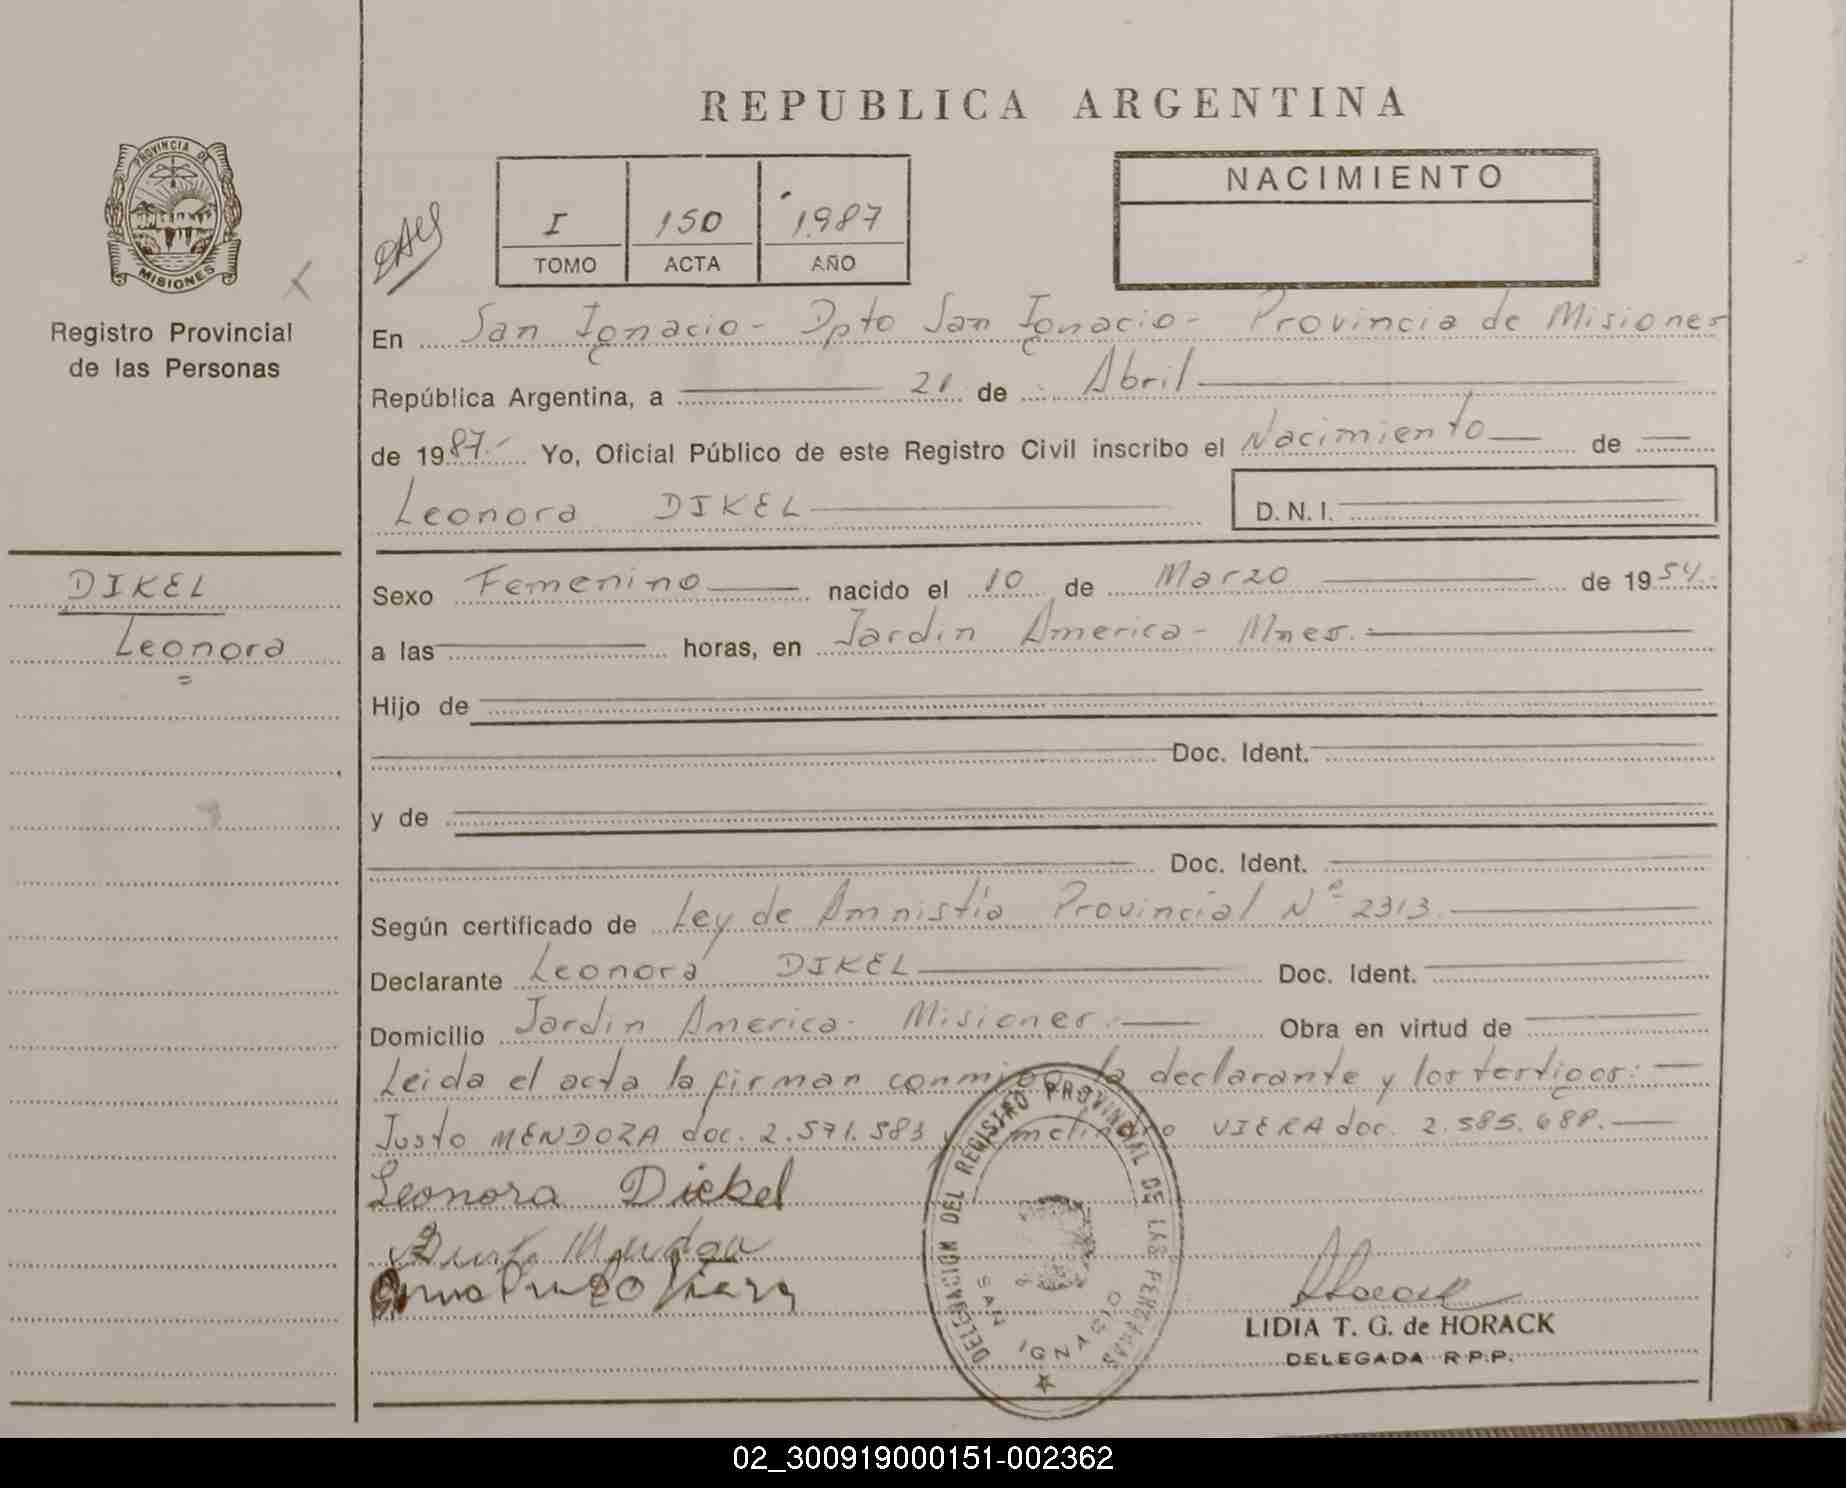 REPUBLICA ARGENTINA
PROVINCIA DE
MISIONES
Registro Provincial
de las Personas
I 150 1987
TOMO ACTA AÑO
NACIMIENTO
En San Ignacio - Dpto San Ignacio - Provincia de Misiones
República Argentina, a 21 de Abril
de 1987.- Yo, Oficial Público de este Registro Civil inscribo el Nacimiento de
Leonora DIKEL D.N.I.
DIKEL
Leonora
Sexo Femenino nacido el 10 de Marzo de 1954.-
a las horas, en Jardin America - Mnes.-
Hijo de
Doc. Ident.
y de
Doc. Ident.
Según certificado de Ley de Amnistía Provincial Nº 2313.
Declarante Leonora DIKEL Doc. Ident.
Domicilio Jardin America - Misiones.- Obra en virtud de
Leida el acta la firman conmigo la declarante y los testigos:
Justo MENDOZA doc. 2.571.583 VIERA doc. 2.585.688.
Leonora Dickel
LIDIA T. G. de HORACK
DELEGADA R.P.P.
DELEGACION DEL REGISTRO PROVINCIAL DE LAS PERSONAS
SAN IGNACIO
02_300919000151-002362